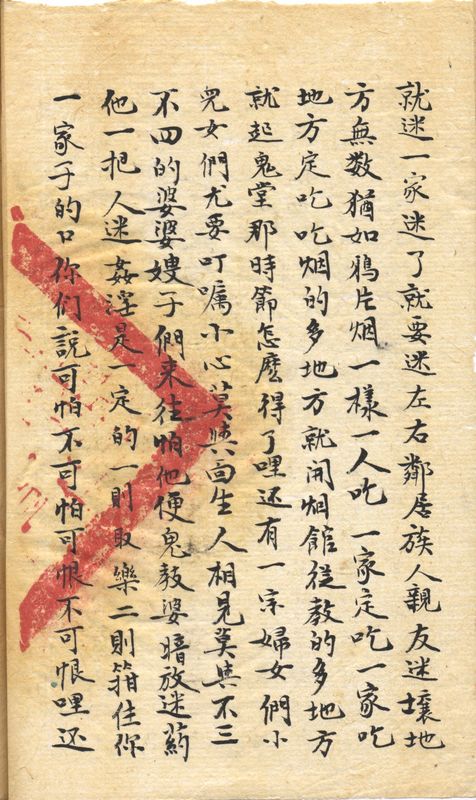 就迷一家迷了就要迷左右鄰居族人親友迷壤地
方無数猶如鴉片烟一樣一人吃一家定吃一家吃
地方定吃吃烟的多地方就開烟館從教的多地方
就起鬼堂那時節怎麽得了哩还有一宗婦女們小
兒女們尤要叮嘱小心莫與面生人相見莫與不三
不四的婆婆嫂子們来往怕他便鬼教婆暗放迷葯
他一把人迷姦淫是一定的一則取樂二則箝住你
一家子的口你们説可怕不可怕可恨不可恨哩还